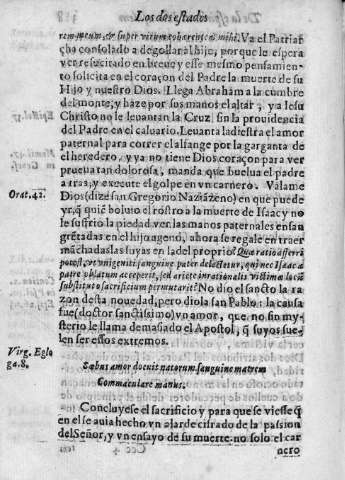 Los dos estados
rem meum, & super virum cohærentem mihi. Va el Patriar
cho consolado a degollar al hijo, porque le espera
ver resuscitado en breue y esse mismo pensamien
to solicita en el coraçon del Padre la muerte de su
Hijo y nuestro Dios. Llega Abraham a la cumbre
del monte, y haze por sus manos el altar, y a Iesu
Christo no le leuantan la Cruz sin la prouidencia
del Padre en el caluario. Leuanta la diestra el amor
paternal para correr el alfange por la garganta de
el heredero, y ya no tiene Dios coraçon para ver
prueua tan dolorosa, manda que buelua el padre
a tras, y execute el golpe en vn carnero. Valame
Orat. 42.
Dios (dize san Gregorio Naziãzeno) en que puede
yr, q̃ quiẽ boluio el rostro a la muerte de Isaac y no
le sufrio la piedad ver las manos paternales ensan
grẽtadas en el hijo ageno, ahora se regale en traer
mãchadas las suyas en la del proprio? Qua ratio afferri
potest, vt vnigeniti sanguine pater delectetur, qui nec Isaac a
patre oblatum acceperit, sed ariete in rationalis victimæ locũ
substituto sacrificium permutarit? No dio el sancto la ra
zon desta nouedad, pero diola san Pablo: la causa
fue (doctor sanctissimo) vn amor, que no sin my-
sterio le llama demasiado el Apostol, q̃ suyos sue-
len ser essos extremos.
Virg. Eglo
ga. 8.
Sæbus amor docuit natorum sanguine matrem
Commaculare manus.
Concluyese el sacrificio y para que se viesse q̃
en el se auia hecho vn alarde cifrado de la passion
del Señor, y vn ensayo de su muerte no solo el car
Ccc 4
nero